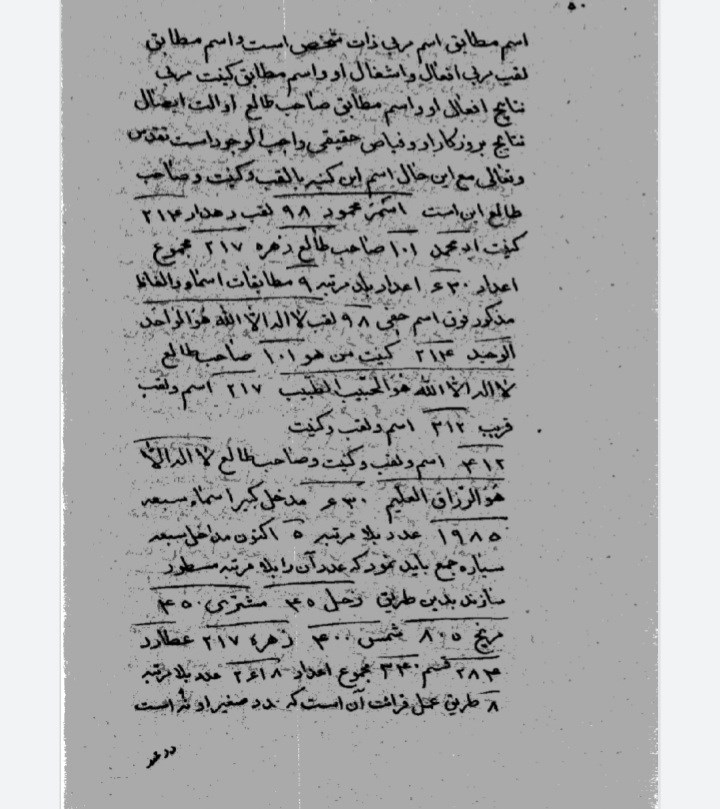 ۵۰
اسم مطابق اسم مربی ذات متخص است و اسم مطابق
لقب مربی افعال و اشغال او و اسم مطابق کینت مربی
نتایج افعال او و اسم مطابق صاحب طالع او الت ایصال
نتایج بروزکار او و فیاض حقیقی واجب الوجود است تقدس
وتعالی مع این حال اسم این کنیز با لقب و کنیت و صاحب
طالع این است اسمش محمود ۹۸ لقب دهدار ۲۱۴
کنیت ابو محمد ۱۰۱ صاحب طالع زهره ۲۱۷ مجموع
اعداد ۶۳۰ اعداد بلا مرتبه ۹ مطابقات اسماء و الفاظ
مذکور فوق اسم حفی ۹۸ لقب لا اله الا الله هو الواحد
الوحید ۲۱۴ کنیت من هو ۱۰۱ صاحب طالع
لا اله الا الله هو الحبیب الطبیب ۲۱۷ اسم و لقب
قریب ۳۱۲ اسم و لقب و کنیت
۴۱۲ اسم و لقب و کنیت و صاحب طالع لا اله الا
هو الرزاق العلیم ۶۳۰ مدخل کبیر اسماء سبعه
۱۹۸۵ عدد بلا مرتبه ۵ اکنون مداخل سبعه
سیاره جمع باید نمود که عدد آن را بلا مرتبه مسطور
سازند بدین طریق زحل ۴۵ مشتری ۹۵۰
مریخ ۸۵۰ شمس ۴۰۰ زهره ۲۱۷ عطارد
۲۸۴ قسم ۳۴۰ مجموع اعداد عدد بلا مرتبه
۸ طریق عمل قرائت آن است که عدد صغیر او نه است